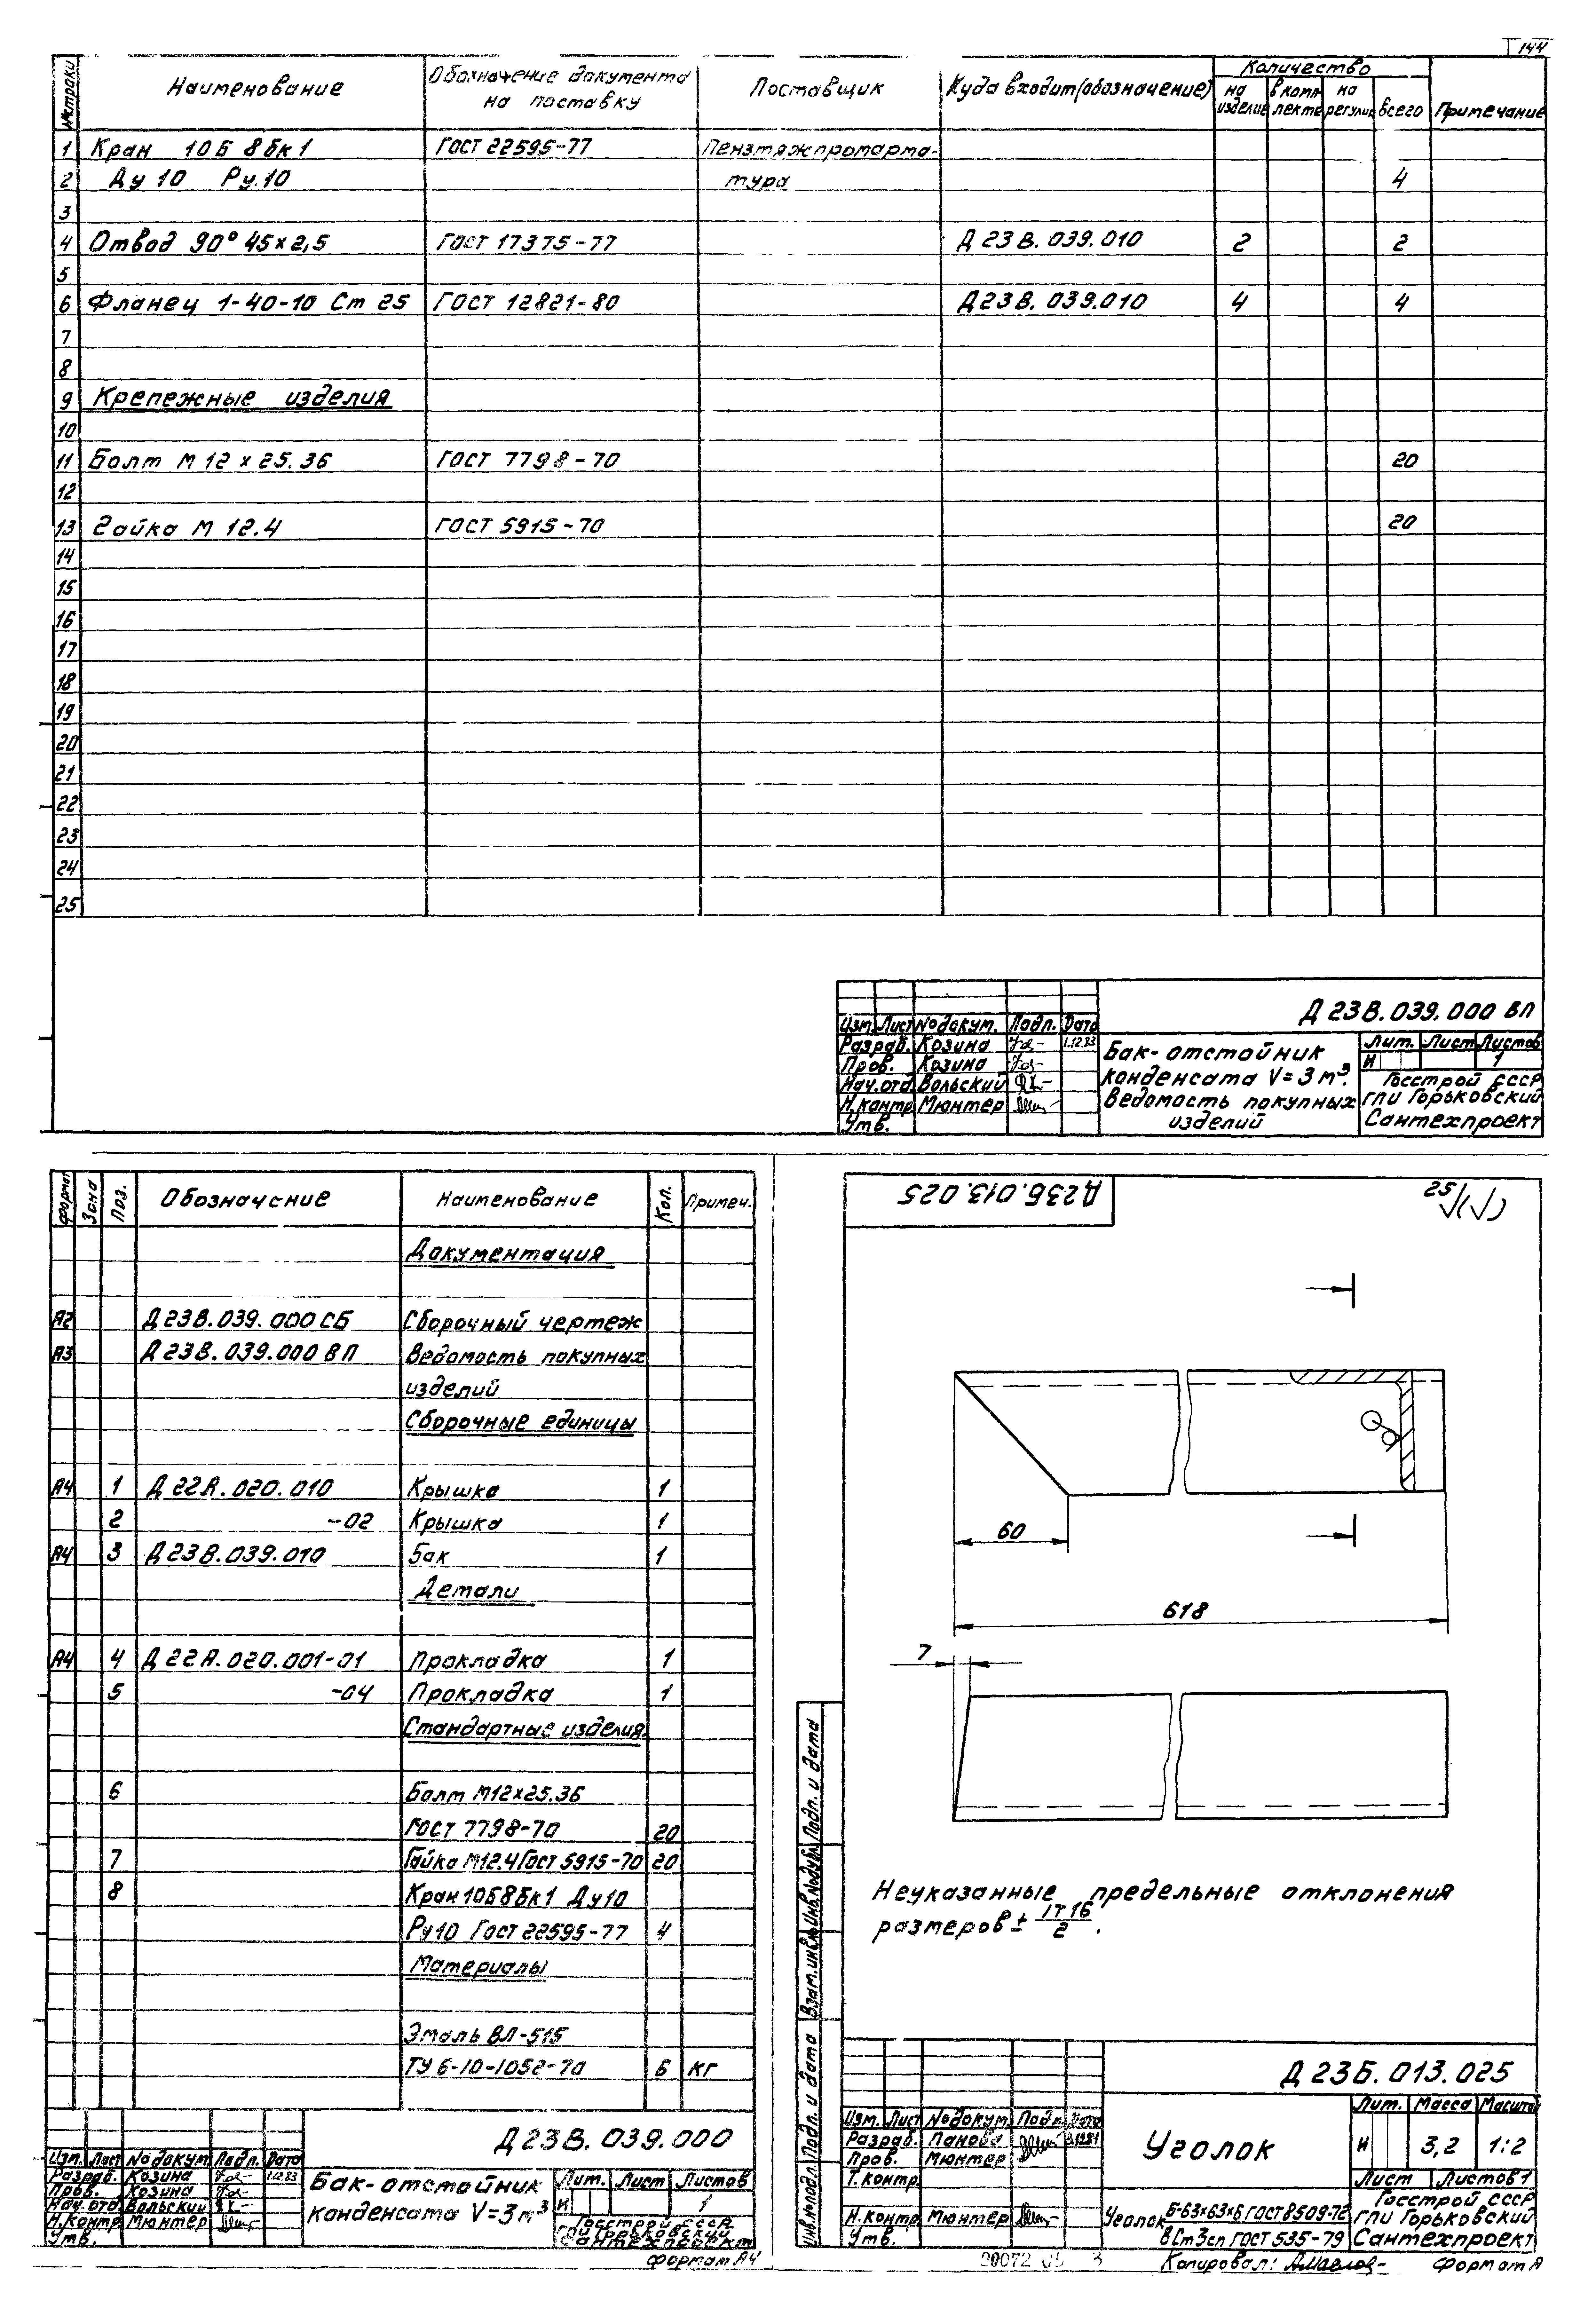 144
№ строки Наименование Обозначение документа на поставку Поставщик Куда входит (обозначение) Количество Примечание
на изделие в комплекте на регулир всего
1 Кран 10Б 8бк1 ГОСТ 22595-77 Пензтяжпромарма-
2 Ду 10 Ру.10 тура 4
3
4 Отвод 90° 45×2,5 ГОСТ 17375-77 Д 23В.039.010 2 2
5
6 Фланец 1-40-10 Ст 25 ГОСТ 12821-80 Д23В.039.010 4 4
7
8
9 Крепежные изделия
10
11 Болт М12×25.36 ГОСТ 7798-70 20
12
13 Гайка М 12.4 ГОСТ 5915-70 20
14
15
16
17
18
19
20
21
22
23
24
25
Д 23В.039.000 ВП
Изм. Лист № докум. Подп. Дата
Разраб. Козина 1.12.83
Пров. Козина
Нач.отд. Вольский
Н.контр. Мюнтер
Утв.
Бак-отстойник
конденсата V=3м³.
Ведомость покупных
изделий
Лит. Лист Листов
И 1
Госстрой СССР
ГПИ Горьковский
Сантехпроект
Формат Зона Поз. Обозначение Наименование Кол. Примеч.
Документация
А2 Д23В.039.000 СБ Сборочный чертеж
А3 Д23В.039.000 ВП Ведомость покупных
изделий
Сборочные единицы
А4 1 Д 22А.020.010 Крышка 1
2 -02 Крышка 1
А4 3 Д23В.039.010 Бак 1
Детали
А4 4 Д 22А.020.001-01 Прокладка 1
5 -04 Прокладка 1
Стандартные изделия
6 Болт М12×25.36
ГОСТ 7798-70 20
7 Гайка М12.4 ГОСТ 5915-70 20
8 Кран 10Б8бк1 Ду10
Ру10 ГОСТ 22595-77 4
Материалы
Эмаль ВЛ-515
ТУ 6-10-1052-70 6 кг
Д23В.039.000
Изм. Лист № докум. Подп. Дата
Разраб. Козина 1.12.83
Пров. Козина
Нач.отд. Вольский
Н.контр. Мюнтер
Утв.
Бак-отстойник
конденсата V=3м³
Лит. Лист Листов
И 1
Госстрой СССР
ГПИ Горьковский
Сантехпроект
Формат А4
Д23Б.013.025
25 (√)
60
618
7
Неуказанные предельные отклонения
размеров ± IT16/2.
Инв.№ подл. Подп. и дата Взам.инв.№ Инв.№ дубл. Подп. и дата
Д 23Б.013.025
Изм. Лист № докум. Подп. Дата
Разраб. Панова
Пров. Мюнтер
Т.контр.
Н.контр. Мюнтер
Утв.
Уголок
Лит. Масса Масштаб
И 3,2 1:2
Лист Листов 1
Уголок Б-63×63×6 ГОСТ 8509-72
ВСт3сп ГОСТ 535-79
Госстрой СССР
ГПИ Горьковский
Сантехпроект
20072 05 3 Копировал: Формат А